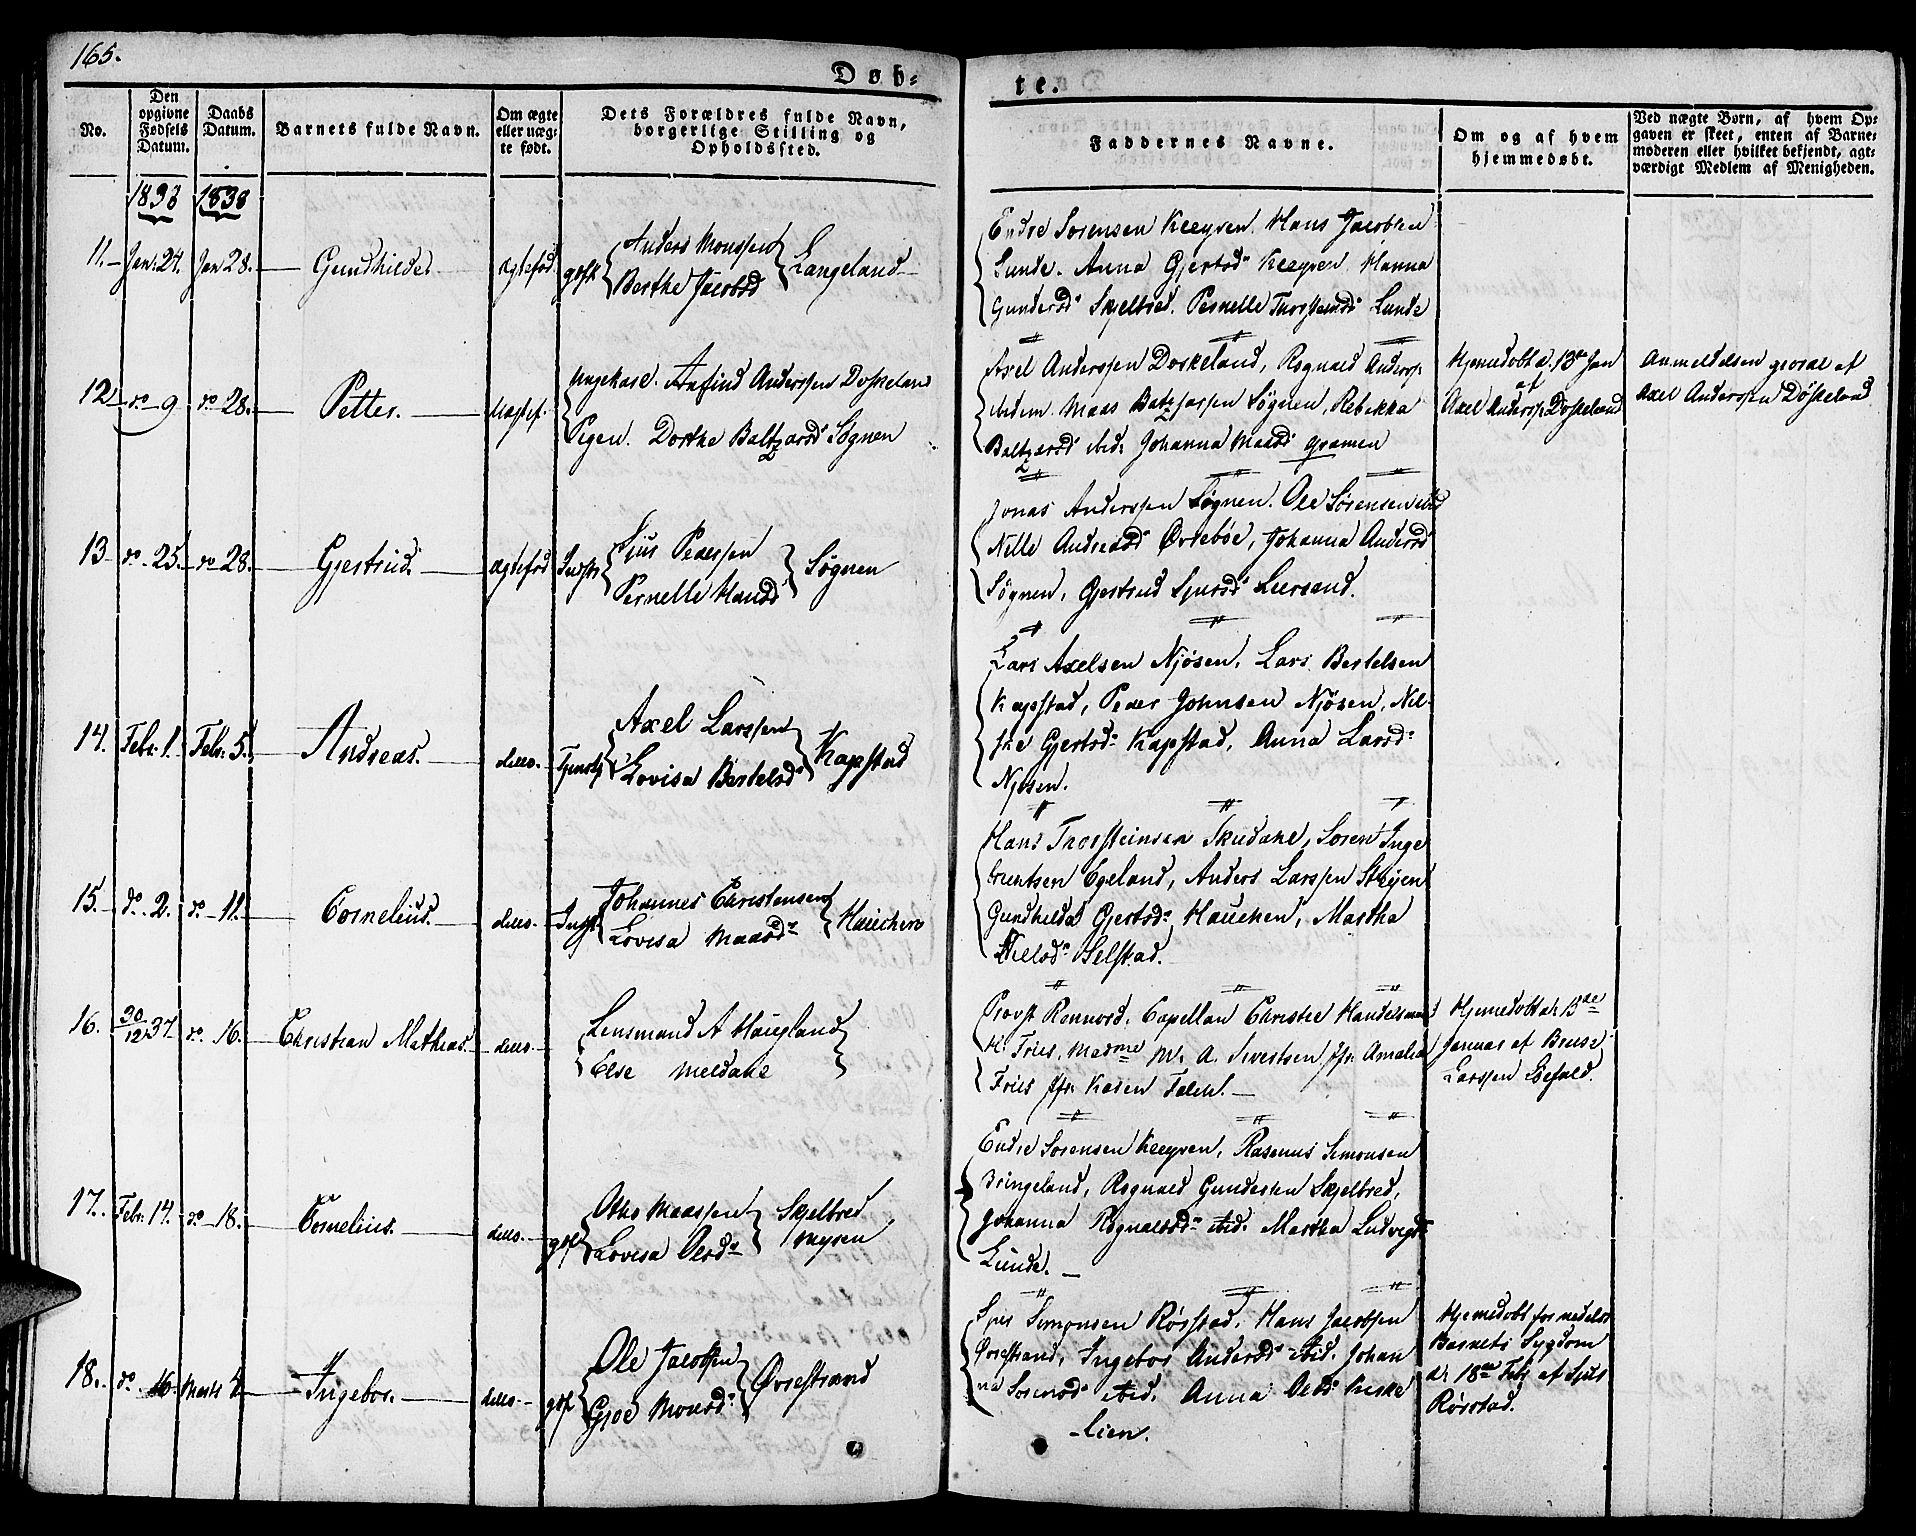 165.
Døb-
te.
No.
Den opgivne Fødsels Datum.
Daabs Datum.
Barnets fulde Navn.
Om ægte eller uægte født.
Dets Forældres fulde Navn, borgerlige Stilling og Opholdssted.
Faddernes Navne.
Om og af hvem hjemmedøbt.
Ved uægte Børn, af hvem Opgaven er skeet, enten af Barnemoderen eller hvilket bekjendt, agtværdigt Medlem af Menigheden.
1838 1838
11. Jan: 24. Jan 28. Gundhilde Ægtefød
Anders Monssen
Berthe Jacobsd
Langeland
Endre Sørensen Hans Jacobsen
Lunde. Anna Gjertsd
Hanna
Gundersd Skjelbred. Pernelle Thorsteinsd Lunde
12. do 9 do 28. Petter. Uægtef.
Ungekarl. Anfind Anderssen Døskeland
Pigen. Dorthe Baltzarsd Søgnen
Axel Anderssen Døskeland, Rognald Anderss.
ibidem. Maas Baltzarsen Søgnen, Rebekka
Baltzarsd ibid: Johanna Maasd
Hjemedøbt d. 13de Jan
af
Axel Anderss. Døskeland
Anmeldelsen gjoral af
Axel Anderssen Døskeland
13 do 25. do 28. Gjertrud. Ægtefød Indst
Sjur Pederssen
Pernelle Hansd
Søgnen
Jonas Anderssen Søgnen. Ole Sørensen ibid
Nelle Andreasd Øvrebøe, Johanna Andersd
Søgnen, Gjertrud Sjursd Leersand.
14. Febr: 1. Febr: 5. Andreas. ditto.
Axel Larssen
Lovisa Bertelsd
Kapstad
Lars Axelsen Njøsen, Lars Bertelsen
Kapstad, Peder Johnsen Njøsen, Nil-
Gjertsd Kapstad, Anna Larsd
Njøsen.
15. do 2. do 11. Cornelius. ditto. Indst
Johannes Christensen
Lovisa Maasd
Hauchen
Hans Thorsteinsen Søren Inge
brigtsen Egeland, Anders Larssen
Gundhilda Gjertsd Hauchen, Martha
Nielsd Selstad.
16. 30/12 37 do 16. Christian Mathias. ditto.
Lensmand A Haugland
Else Meldahl
Provst Rennord. Capellan Christie Handelsmand
Hr Friis, Madme M. A. Sivertsen jfr. Amalia
Friis jfr. Karen Falch.
Hjemedøbt d. 13de
Januar af
Larssen
17. Febr: 14. do 18. Cornelius. ditto. gbf
Otho Maassen
Lovisa Olsd
Skjelbred
myren
Endre Sørensen Rasmus Simonsen
Bringeland, Rognald Gundersen Skjelbred,
Johanna Rognaldsd ibid. Martha Ludvigsd
Lunde.
18. do 16. Marts 4 Ingebor. ditto. gbf
Ole Jacobsen
Gjoe Monsd
Øvrestrand
Sjur Simonsen Rørstad. Hans Jacobsen
Øvrestrand, Ingebor Andersd ibid. Johan
na Sørensd ibid. Anna Olsd
lien.
Hjemedøbt formedelst
Barnets Sygdom
d. 18de Feb af Sjur
Rørstad.